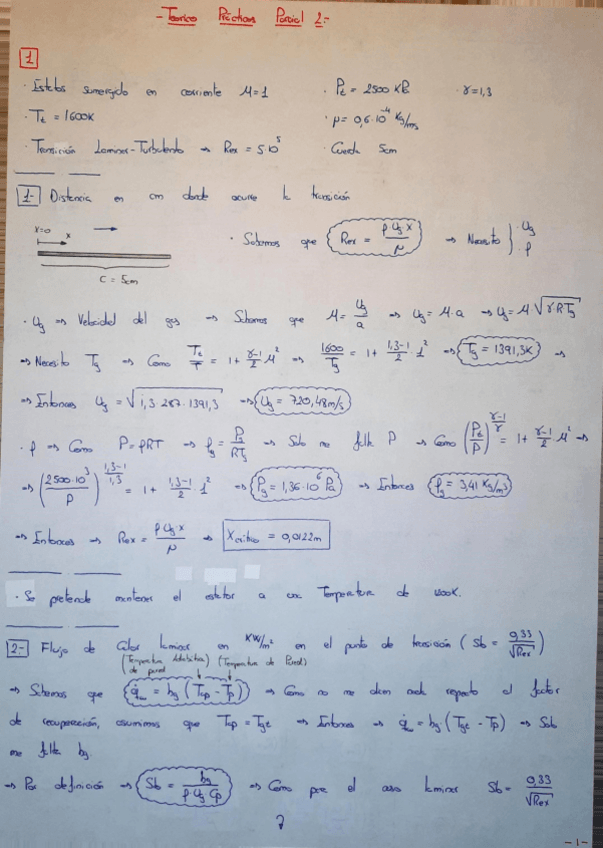 - Teorico Prácticos Parcial 2.-
1
· Estator sumergido en corriente M=1 · Pt = 2500 KPa · γ=1,3
· Tt = 1600K · μ= 0,6·10^-4 Kg/ms
· Transición Laminar-Turbulento → Rex = 5·10^5 · Cuerda 5cm
1- Distancia en cm donde ocurre la transición
x=0 x
· Sabemos que Rex = ρ·Ug·x/μ → Necesito } ·Ug ·ρ
C = 5cm
· Ug → Velocidad del gas → Sabemos que M = Ug/a → Ug = M·a → Ug = M√γ·R·Tg
→ Necesito Tg → Como Tt/T = 1 + γ-1/2 M² → 1600/Tg = 1 + 1,3-1/2 · 1² → Tg = 1391,3K →
→ Entonces Ug = √1,3·287·1391,3 → Ug = 720,48m/s
· ρ → Como P=ρRT → ρg = Pg/RTg → Solo me falta P → Como (Pt/P)^γ-1/γ = 1 + γ-1/2 M² →
→ (2500·10³/P)^1,3-1/1,3 = 1 + 1,3-1/2 1² → Pg = 1,36·10^6 Pa → Entonces ρg = 3,41 Kg/m³
→ Entonces → Rex = ρ·Ug·x/μ → Xcritico = 0,0122m
· Se pretende mantener el estator a una Temperatura de K.
2.- Flujo de Calor laminar en KW/m² en el punto de transición ( Sb = 0,33/√Rex )
(Temperatura Adiabática de pared) (Temperatura de Pared)
→ Sabemos que = hg (Tap - Tp) → Como no me dicen nada respecto al factor
de recuperación, asumimos que Tap = Tgt → Entonces → = hg (Tgt - Tp) → Solo
me falta hg.
→ Por definición → Sb = hg/ρ·Ug·Cp → Como para el caso laminar Sb = 0,33/√Rex
-1-